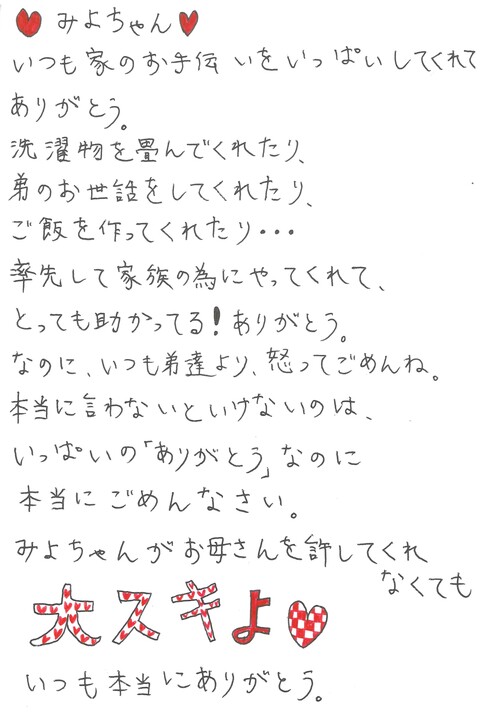 ♥みよちゃん♥
いつも家のお手伝いをいっぱいしてくれて
ありがとう。
洗濯物を畳んでくれたり、
弟のお世話をしてくれたり、
ご飯を作ってくれたり・・・
率先して家族の為にやってくれて、
とっても助かってる!ありがとう。
なのに、いつも弟達より、怒ってごめんね。
本当に言わないといけないのは、
いっぱいの「ありがとう」なのに
本当にごめんなさい。
みよちゃんがお母さんを許してくれ
なくても
大スキよ♥
いつも本当にありがとう。